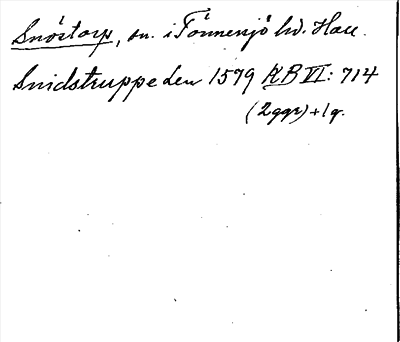 Snöstorp, sn. i Tönnersjö hd. Hall.
Snidstruppe den 1579 KB VI: 714
(2ggr)+1g.